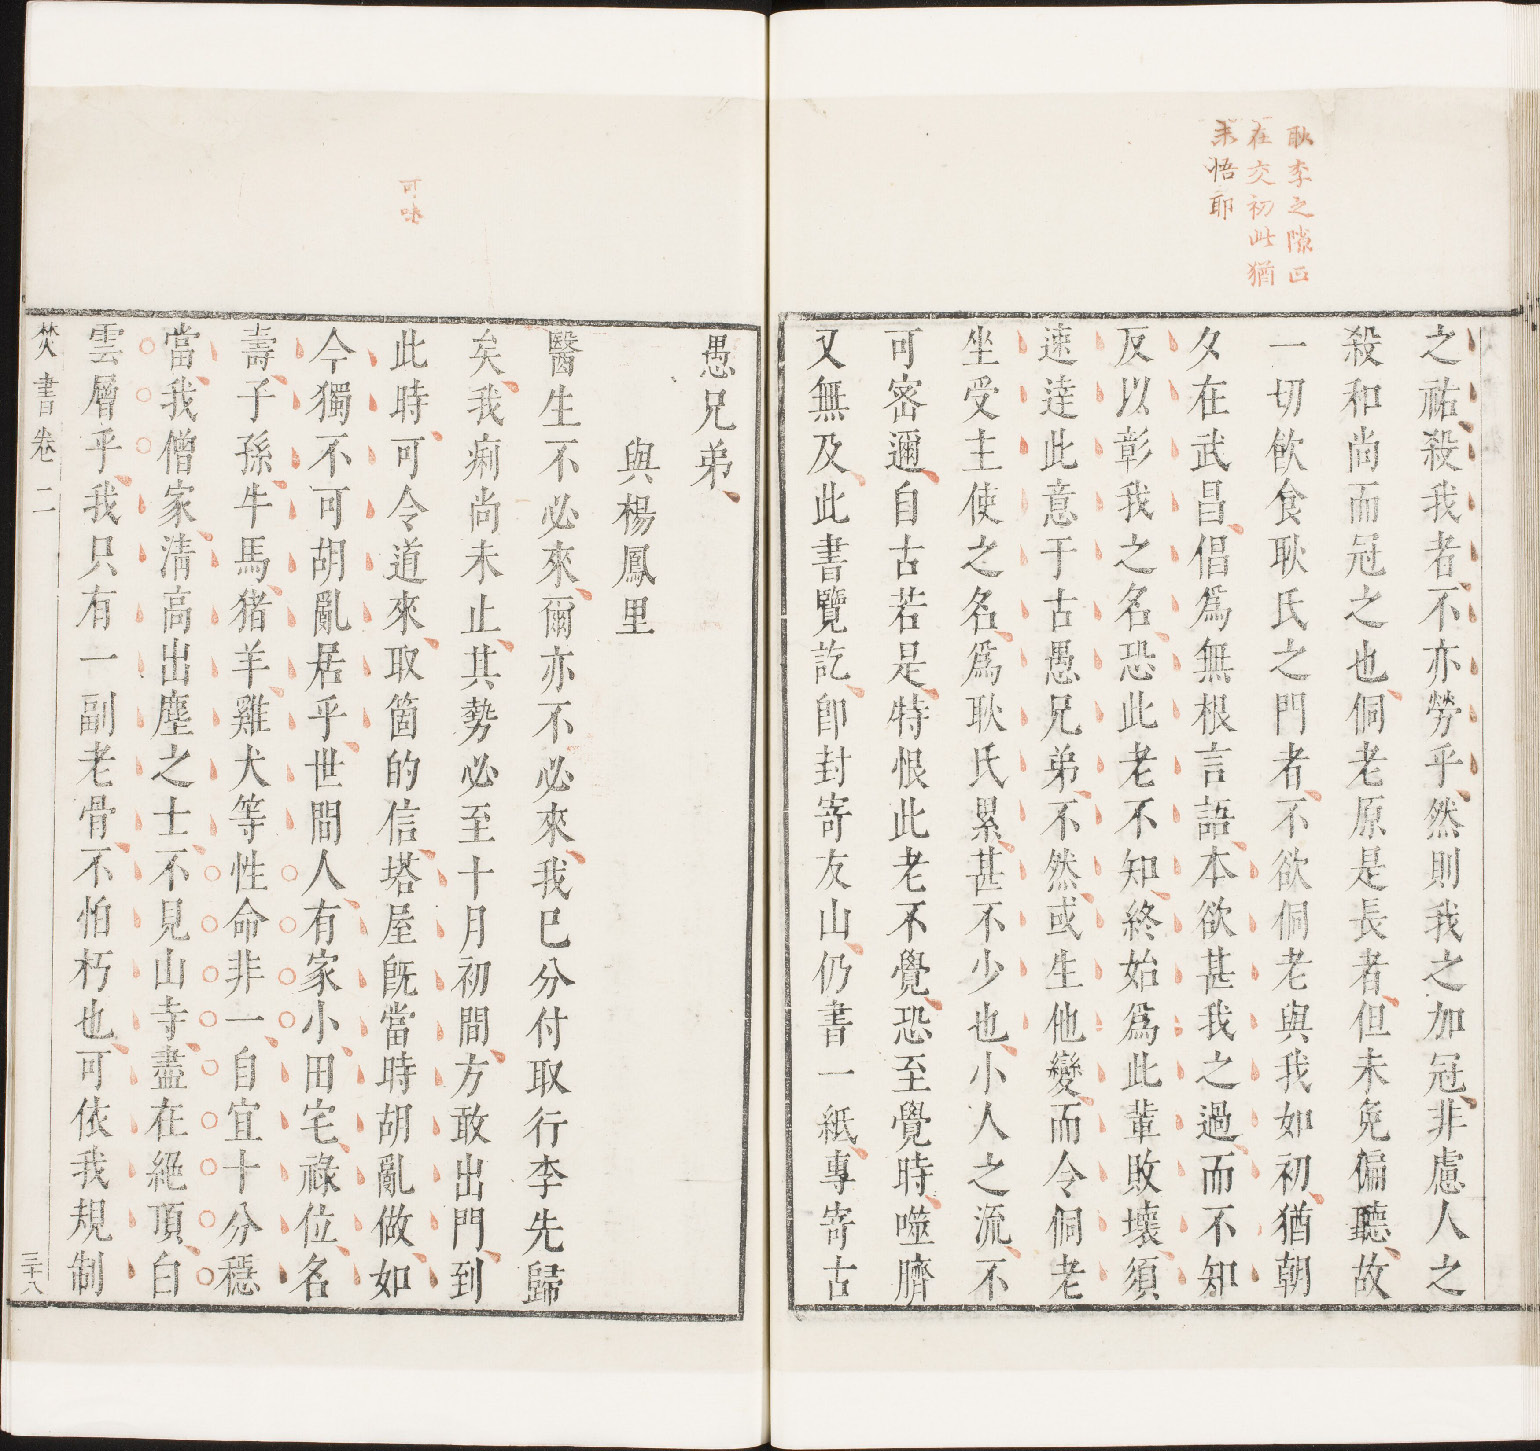 耿李之隙正
在交初此猶
未悟耶
之祐殺我者不亦勞乎然則我之加冠非慮人之
殺和尚而冠之也侗老原是長者但未免偏聽故
一切飲食耿氏之門者不欲侗老與我如初猶朝
夕在武昌倡爲無根言語本欲甚我之過而不知
反以彰我之名恐此老不知終始爲此輩敗壞須
速達此意于古愚兄弟不然或生他變而令侗老
坐受主使之名爲耿氏累甚不少也小人之流不
可密邇自古若是特恨此老不覺恐至覺時噬臍
又無及此書覽訖卽封寄友山仍書一紙專寄古
可味
愚兄弟
與楊鳳里
醫生不必來爾亦不必來我已分付取行李先歸
矣我痢尚未止其勢必至十月初間方敢出門到
此時可令道來取箇的信塔屋旣當時胡亂做如
今獨不可胡亂居乎世間人有家小田宅祿位名
壽子孫牛馬猪羊雞犬等性命非一自宜十分穩
當我僧家清高出塵之士不見山寺盡在絕頂白
雲層乎我只有一副老骨不怕朽也可依我規制
焚書卷二
三十八